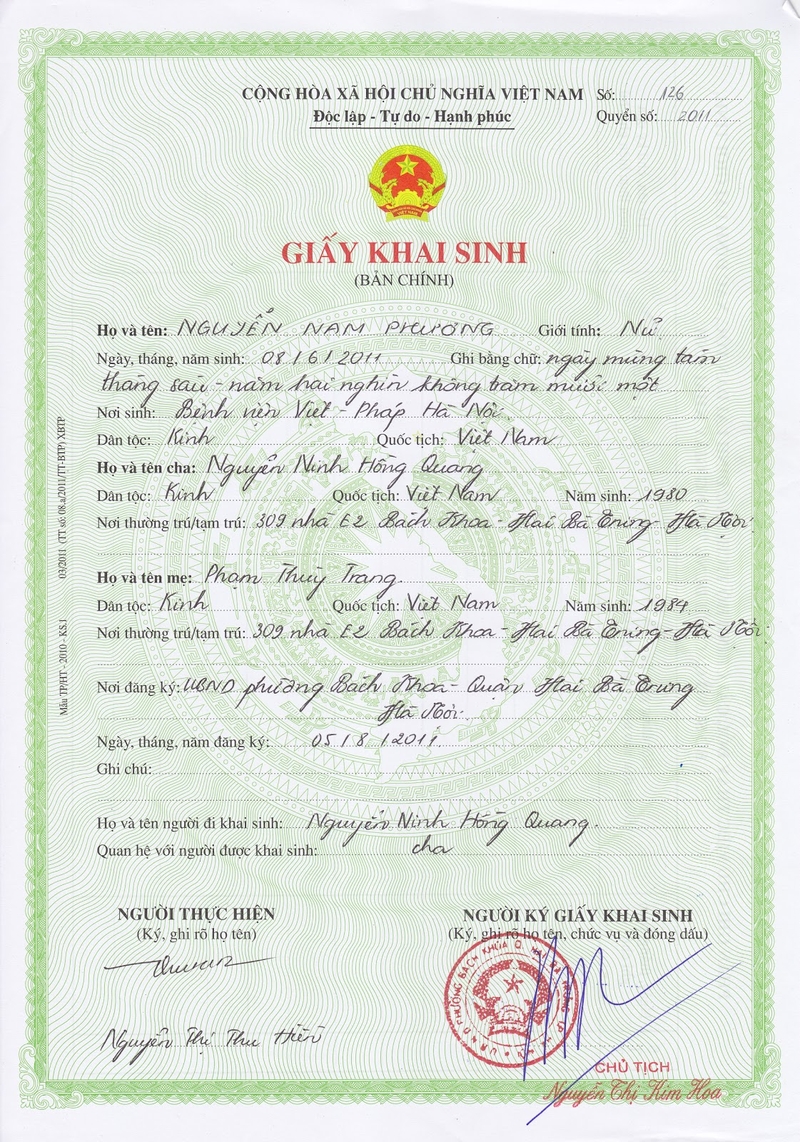 CỘNG HÒA XÃ HỘI CHỦ NGHĨA VIỆT NAM
Độc lập - Tự do - Hạnh phúc
Số: 126
Quyển số: 2011
VIỆT NAM
GIẤY KHAI SINH
(BẢN CHÍNH)
Họ và tên: NGUYỄN NAM PHƯƠNG Giới tính: Nữ
Ngày, tháng, năm sinh: 08/6/2011 Ghi bằng chữ: ngày mùng tám
tháng sáu - năm hai nghìn không trăm mười một
Nơi sinh: Bệnh viện Việt - Pháp Hà Nội.
Dân tộc: Kinh Quốc tịch: Việt Nam
Họ và tên cha: Nguyễn Ninh Hồng Quang
Dân tộc: Kinh Quốc tịch: Việt Nam Năm sinh: 1980
Nơi thường trú/tạm trú: 309 nhà E2 Bách Khoa - Hai Bà Trưng - Hà Nội.
Họ và tên mẹ: Phạm Thuỳ Trang.
Dân tộc: Kinh Quốc tịch: Việt Nam Năm sinh: 1984
Nơi thường trú/tạm trú: 309 nhà E2 Bách Khoa - Hai Bà Trưng - Hà Nội.
Nơi đăng ký: UBND phường Bách Khoa - Quận Hai Bà Trưng
Hà Nội.
Ngày, tháng, năm đăng ký: 05/8/2011.
Ghi chú:
Họ và tên người đi khai sinh: Nguyễn Ninh Hồng Quang.
Quan hệ với người được khai sinh: cha
Mẫu TP/HT - 2010 - KS.1 03/2011 (TT số: 08.a/2011/TT-BTP) XBTP
NGƯỜI THỰC HIỆN
(Ký, ghi rõ họ tên)
Nguyễn Thị Thu Hiền
NGƯỜI KÝ GIẤY KHAI SINH
(Ký, ghi rõ họ tên, chức vụ và đóng dấu)
U.B.N.D PHƯỜNG BÁCH KHOA Q. HAI BÀ TRƯNG T.P HÀ NỘI
CHỦ TỊCH
Nguyễn Thị Kim Hoa